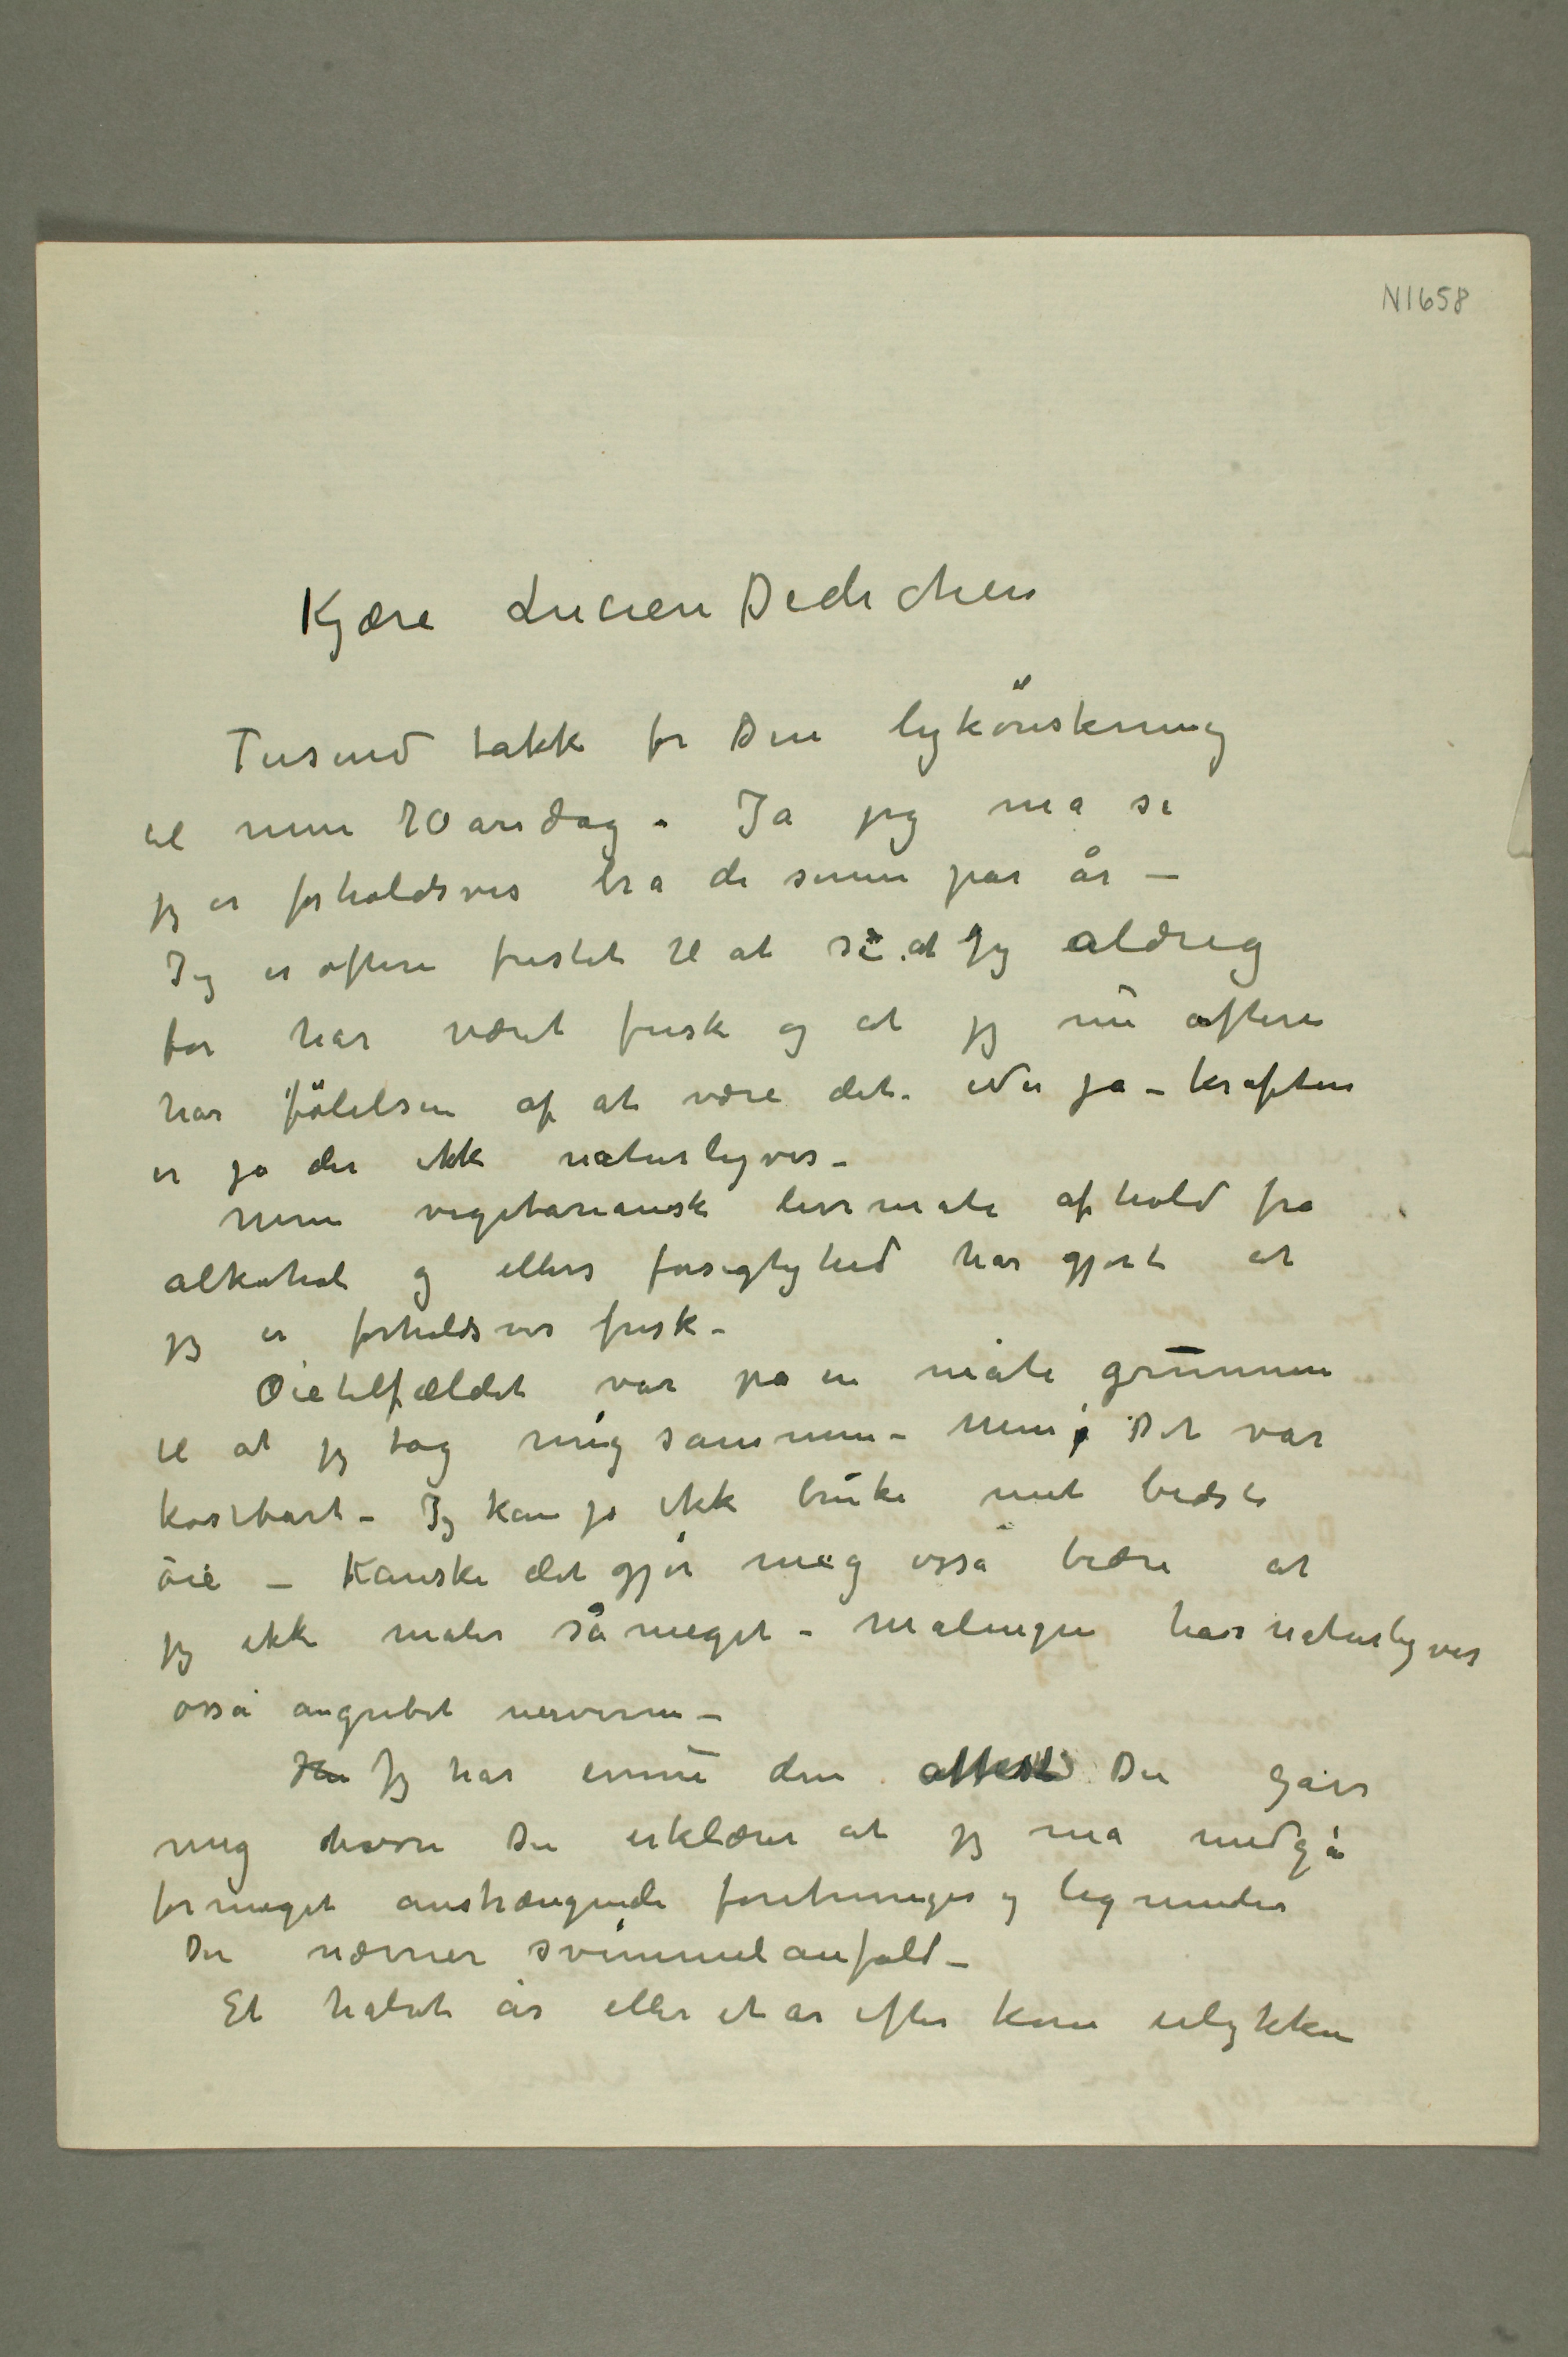 N1658
Kjære Lucien Dedichen
Tusind takk for Din lykönskning
til min 70 årsdag. Ja jeg må si
jeg er forholdsvis bra de sinne par år –
Jeg er oftere fristet til at si at jeg aldrig
før har været frisk og at jeg nu oftere
har følelsen af at være det. Nu ja – kræften
er jo der ikke naturligvis –
Min vegetarianske livsmåte afhold fra
alkohol og ellers forsigtighed har gjort at
jeg er forholdsvis frisk –
Øietilfældet var på en måte grunnen
til at jeg tog mig sammen – Men Det var
kostbart – Jeg kan jo ikke bruke mit bedste
öie – Kanske det gjör mig også bedre at
jeg ikke maler så meget – Malingen har naturligvis
osså angrebet nerverne –
Jeg har ennu den attest Du gav
mig hvori Du erklærer at jeg må undgå
for meget anstrængende foretninger og lignende
Du nævner svimmelanfald –
Et halvt år eller et år efter kom ulykken